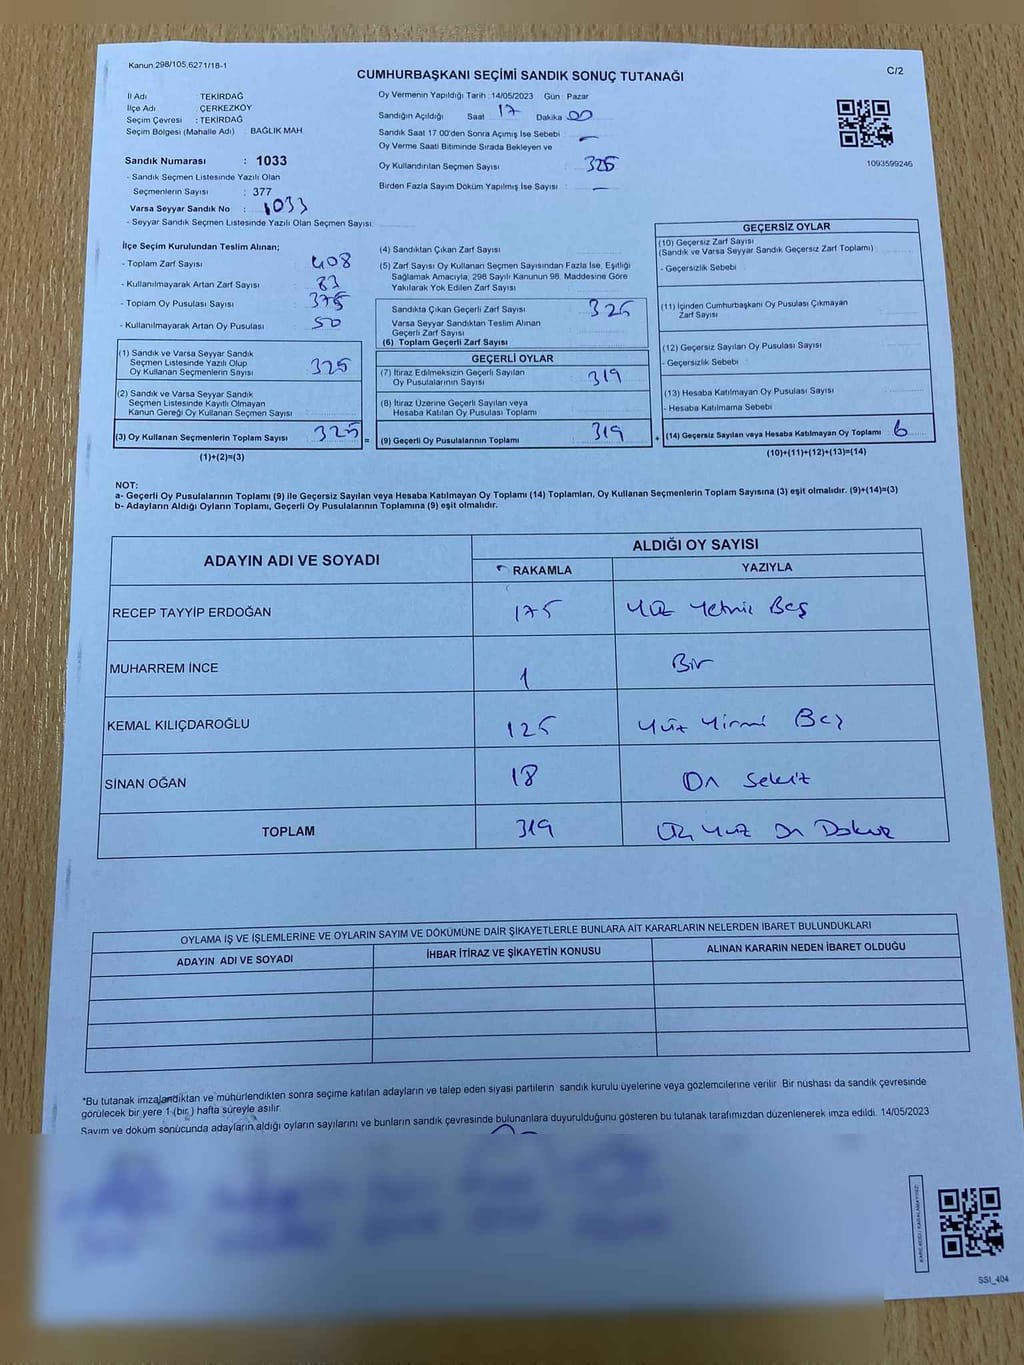 Kanun.298/105,6271/18-1
CUMHURBAŞKANI SEÇİMİ SANDIK SONUÇ TUTANAĞI
C/2
İl Adı TEKİRDAĞ
İlçe Adı : ÇERKEZKÖY
Seçim Çevresi : TEKİRDAĞ
Seçim Bölgesi (Mahalle Adı) : BAĞLIK MAH.
Sandık Numarası : 1033
- Sandık Seçmen Listesinde Yazılı Olan
Seçmenlerin Sayısı : 377
Varsa Seyyar Sandık No : 1033
- Seyyar Sandık Seçmen Listesinde Yazılı Olan Seçmen Sayısı
Oy Vermenin Yapıldığı Tarih :14/05/2023 Gün : Pazar
Sandığın Açıldığı Saat 17 Dakika 00
Sandık Saat 17.00'den Sonra Açımış İse Sebebi : -
Oy Verme Saati Bitiminde Sırada Bekleyen ve
Oy Kullandırılan Seçmen Sayısı : 325
Birden Fazla Sayım Döküm Yapılmış İse Sayısı : -
1093599246
İlçe Seçim Kurulundan Teslim Alınan;
- Toplam Zarf Sayısı 408
- Kullanılmayarak Artan Zarf Sayısı : 83
- Toplam Oy Pusulası Sayısı 375
- Kullanılmayarak Artan Oy Pusulası : 50
(1) Sandık ve Varsa Seyyar Sandık
Seçmen Listesinde Yazılı Olup
Oy Kullanan Seçmenlerin Sayısı 325
(2) Sandık ve Varsa Seyyar Sandık
Seçmen Listesinde Kayıtlı Olmayan
Kanun Gereği Oy Kullanan Seçmen Sayısı
(3) Oy Kullanan Seçmenlerin Toplam Sayısı 325 =
(1)+(2)=(3)
(4) Sandıktan Çıkan Zarf Sayısı
(5) Zarf Sayısı Oy Kullanan Seçmen Sayısından Fazla İse, Eşitliği
Sağlamak Amacıyla, 298 Sayılı Kanunun 98. Maddesine Göre
Yakılarak Yok Edilen Zarf Sayısı
Sandıkta Çıkan Geçerli Zarf Sayısı : 325
Varsa Seyyar Sandıktan Teslim Alınan
Geçerli Zarf Sayısı
(6) Toplam Geçerli Zarf Sayısı
GEÇERLİ OYLAR
(7) İtiraz Edilmeksizin Geçerli Sayılan
Oy Pusulalarının Sayısı 319
(8) İtiraz Üzerine Geçerli Sayılan veya
Hesaba Katılan Oy Pusulası Toplamı
(9) Geçerli Oy Pusulalarının Toplamı 319 +
GEÇERSİZ OYLAR
(10) Geçersiz Zarf Sayısı
(Sandık ve Varsa Seyyar Sandık Geçersiz Zarf Toplamı)
- Geçersizlik Sebebi
(11) İçinden Cumhurbaşkanı Oy Pusulası Çıkmayan
Zarf Sayısı
(12) Geçersiz Sayılan Oy Pusulası Sayısı
- Geçersizlik Sebebi
(13) Hesaba Katılmayan Oy Pusulası Sayısı
- Hesaba Katılmama Sebebi
(14) Geçersiz Sayılan veya Hesaba Katılmayan Oy Toplamı 6
(10)+(11)+(12)+(13)=(14)
NOT:
a- Geçerli Oy Pusulalarının Toplamı (9) ile Geçersiz Sayılan veya Hesaba Katılmayan Oy Toplamı (14) Toplamları, Oy Kullanan Seçmenlerin Toplam Sayısına (3) eşit olmalıdır. (9)+(14)=(3)
b- Adayların Aldığı Oyların Toplamı, Geçerli Oy Pusulalarının Toplamına (9) eşit olmalıdır.
ADAYIN ADI VE SOYADI
ALDIĞI OY SAYISI
RAKAMLA YAZIYLA
RECEP TAYYİP ERDOĞAN 175 Yüz Yetmiş Beş
MUHARREM İNCE 1 Bir
KEMAL KILIÇDAROĞLU 125 Yüz Yirmi Beş
SİNAN OĞAN 18 On Sekiz
TOPLAM 319 Üç Yüz On Dokuz
OYLAMA İŞ VE İŞLEMLERİNE VE OYLARIN SAYIM VE DÖKÜMÜNE DAİR ŞİKAYETLERLE BUNLARA AİT KARARLARIN NELERDEN İBARET BULUNDUKLARI
ADAYIN ADI VE SOYADI İHBAR İTİRAZ VE ŞİKAYETİN KONUSU ALINAN KARARIN NEDEN İBARET OLDUĞU
*Bu tutanak imzalandıktan ve mühürlendikten sonra seçime katılan adayların ve talep eden siyasi partilerin sandık kurulu üyelerine veya gözlemcilerine verilir. Bir nüshası da sandık çevresinde
görülecek bir yere 1 (bir ) hafta süreyle asılır.
Sayım ve döküm sonucunda adayların aldığı oyların sayılarını ve bunların sandık çevresinde bulunanlara duyurulduğunu gösteren bu tutanak tarafımızdan düzenlenerek imza edildi. 14/05/2023
KARE KODU KARALAMAYINIZ!
SSI_404